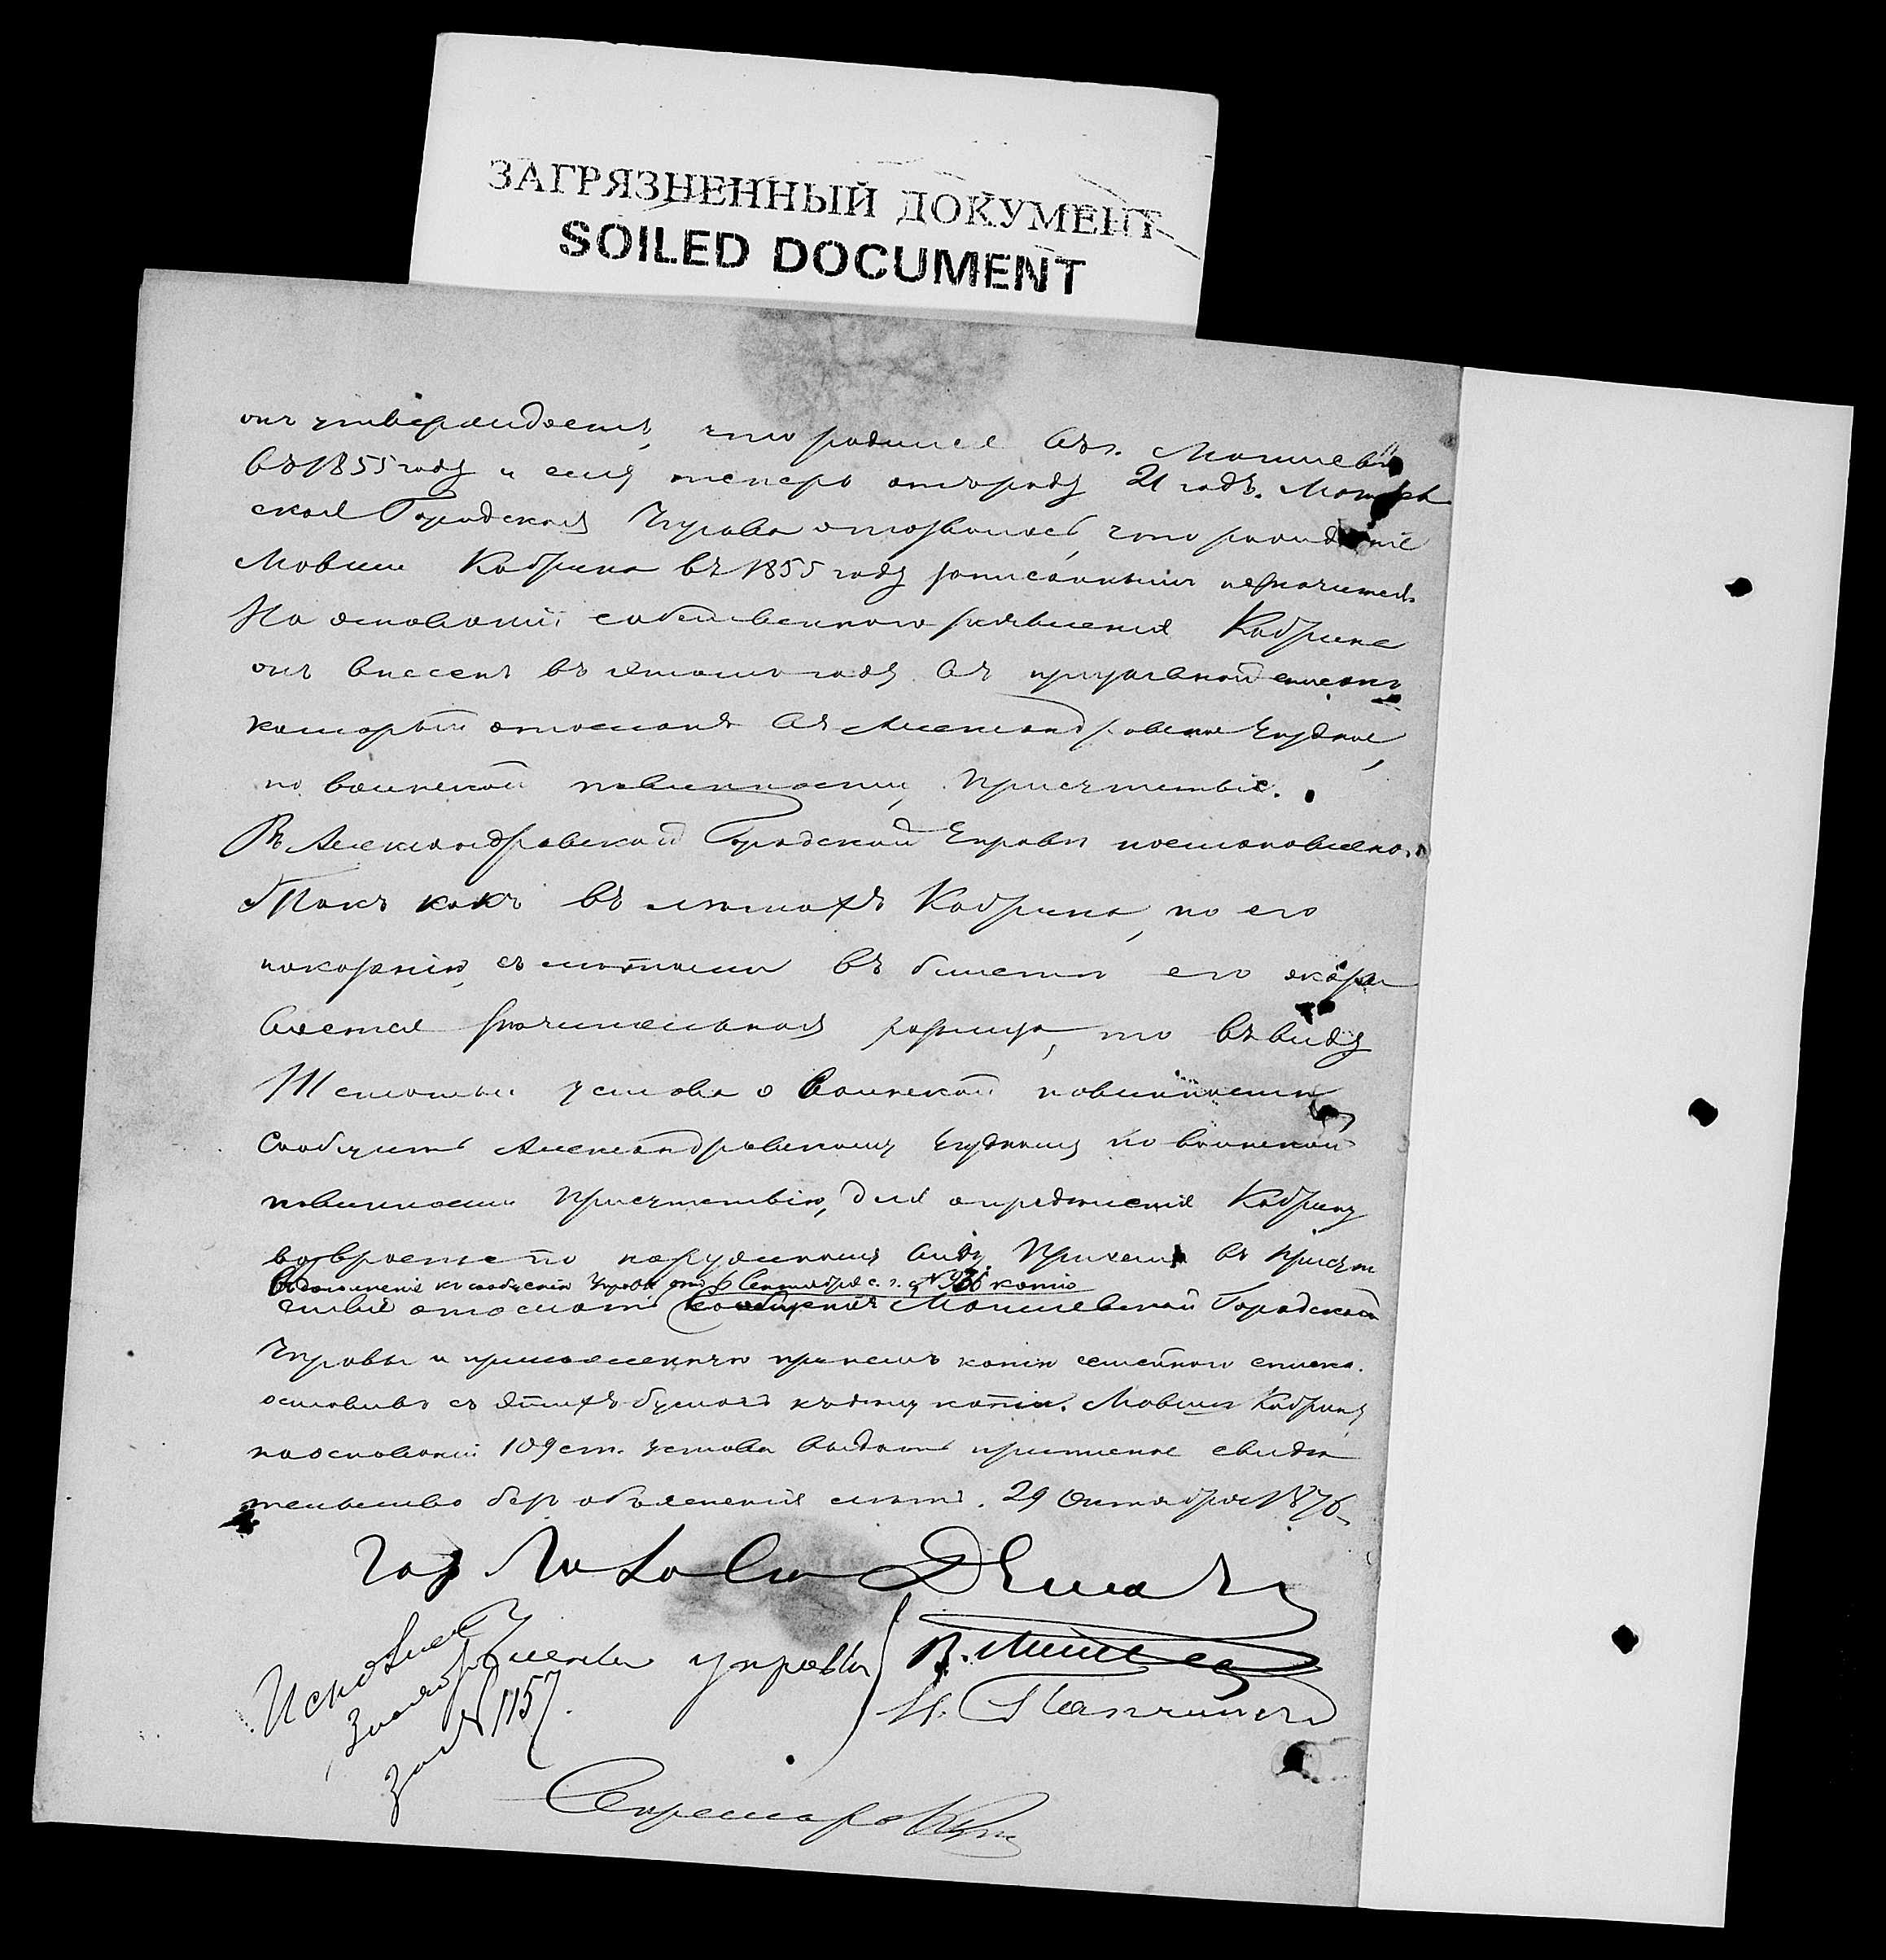 ЗАГРЯЗНЕННЫЙ ДОКУМЕНТ
SOILED DOCUMENT
онъ утверждаетъ, что родился въ г. Могилевѣ
въ 1855 году и ему теперь отъ роду 21 годъ. Могилев
ская Городская Управа отозвалась, что рожденіе
Мовши Кобрина въ 1855 году записаннымъ не значится.
На основаніи собственнаго заявленія Кобрина
онъ внесенъ въ этомъ году въ призывной списокъ
который отосланъ въ Александровское Уѣздное
по воинской повинности Присутствіе.
Въ Александровской Городской Управѣ постановлено:
Такъ какъ въ лѣтахъ Кобрина, по его
показанію, съ лѣтами въ билетѣ его оказы
вается значительная разница, то въ виду
статьи устава о воинской повинности
сообщить Александровскому Уѣздному по воинской
повинности Присутствію, для опредѣленія Кобрину
возраста по наружному виду. При чемъ въ Присут
Въ дополненіе къ сообщенію Управы отъ 6 Сентября с. г. № копію
ствіе отослать сообщенія Могилевской Городской
Управы и приложенную при немъ копію семейнаго списка.
оставивъ съ этихъ бумагъ къ дѣлу копіи. Мовшѣ Кобрину
на основаніи 109 ст. устава выдать приписное свидѣ
тельство безъ объясненія лѣтъ. 29 Октября 1876
Гор. Голова
Члены управы
В.
И.
Исполнено
за № 1157.
Секретарь